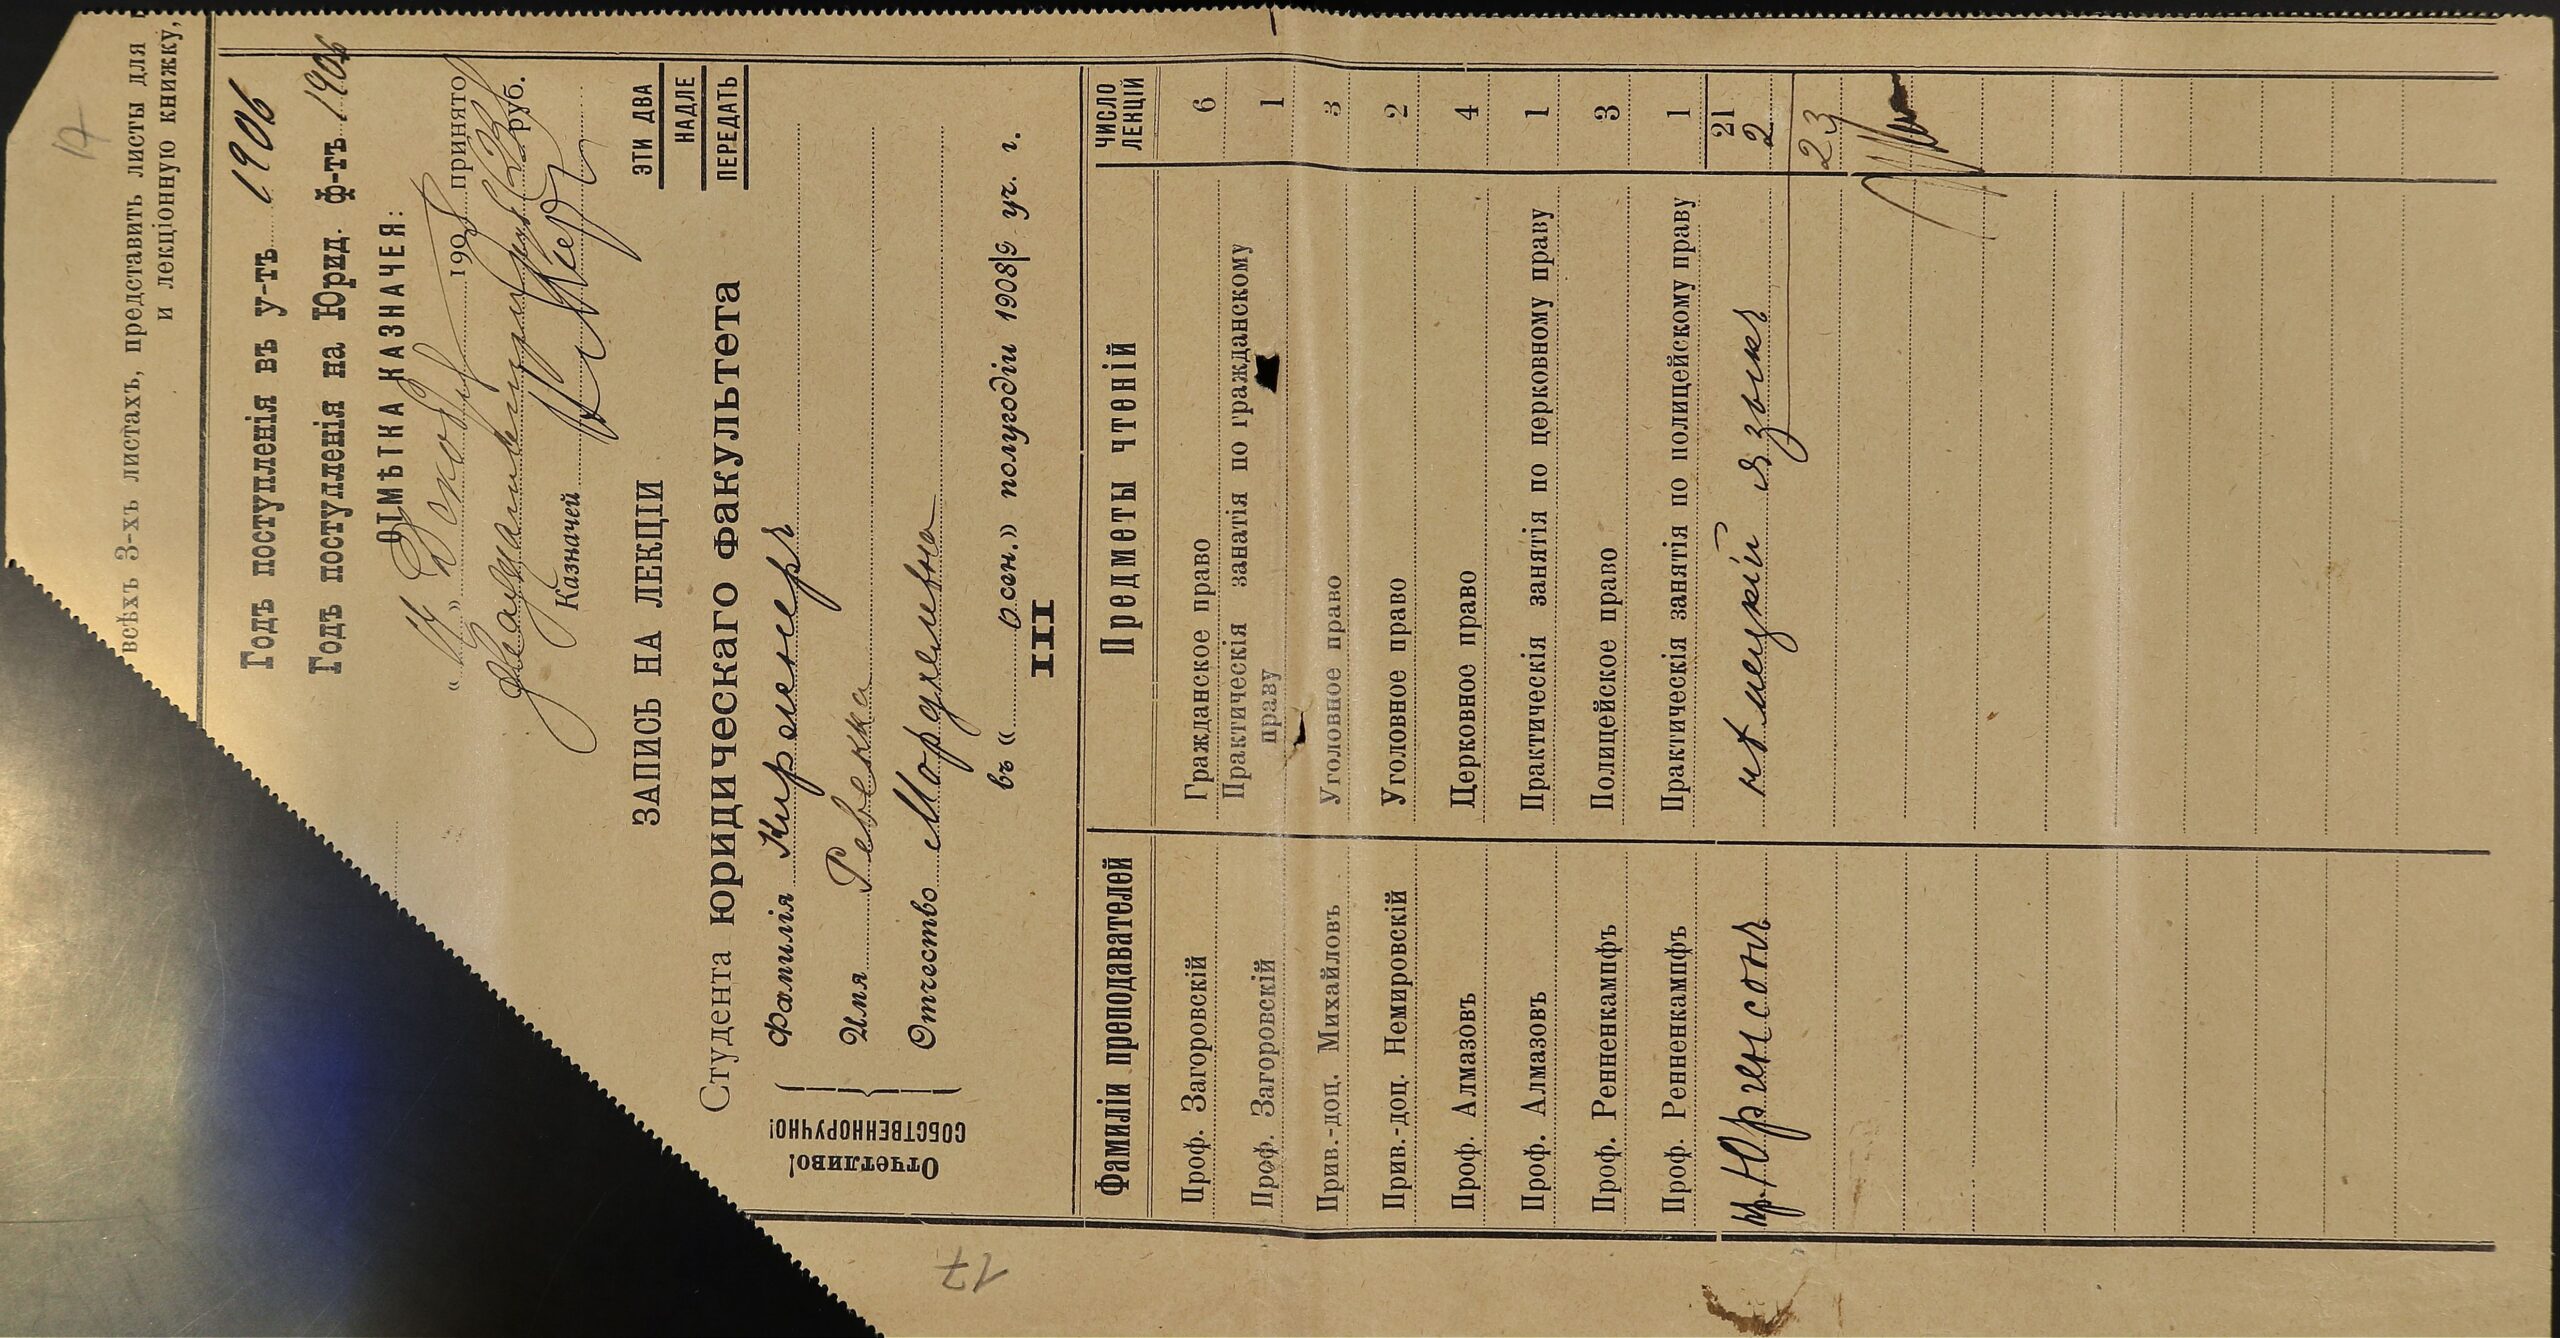 17
всѣхъ 3-хъ листахъ, представить листы для
и лекціонную книжку,
Годъ поступленія въ у-тъ 1906
Годъ поступленія на Юрид. ф-тъ 1906
ОТМѢТКА КАЗНАЧЕЯ:
" " 1908 принято
руб.
Казначей
ЭТИ ДВА
НАДЛЕ
ПЕРЕДАТЬ
ЗАПИСЬ НА ЛЕКЦІИ
Студента юридическаго факультета
Отчетливо!
СОБСТВЕННОРУЧНО!
Фамилія
Имя Ревекка
Отчество Мордхелевна
въ „осен.” полугодіи 1908/9 уч. г.
III
Фамиліи преподавателей Предметы чтеній ЧИСЛО ЛЕКЦІЙ
Проф. Загоровскій Гражданское право 6
Проф. Загоровскій Практическія занатія по гражданскому праву 1
Прив.-доц. Михайловъ Уголовное право 3
Прив.-доц. Немировскій Уголовное право 2
Проф. Алмазовъ Церковное право 4
Проф. Алмазовъ Практическія занятія по церковному праву 1
Проф. Ренненкампфъ Полицейское право 3
Проф. Ренненкампфъ Практическія занятія по полицейскому праву 1
21
пр. Юргенсонъ нѣмецкій языкъ 2
23
17